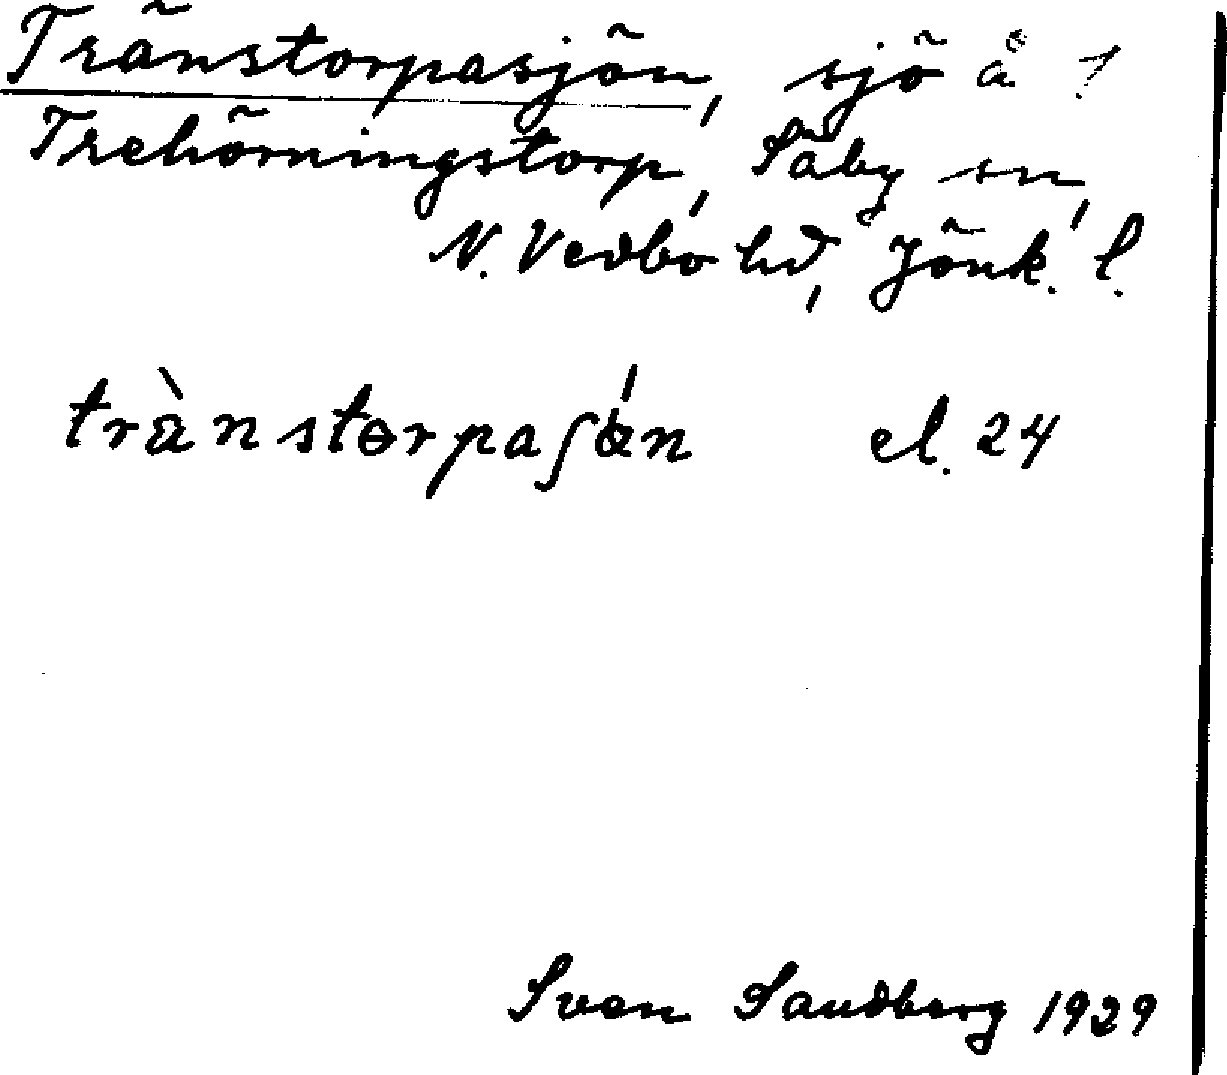 Tränstorpasjön, sjö å ?
Trehörningstorp, Säby sn,
N. Vedbo hd, Jönk. l.
trànstɵrpaʃœ́n el. 24
Sven Sandberg 1929